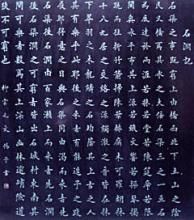 石澗記
石渠之事既窮上由橋西北下土山之陰
民又橋焉其水之大倍石渠三之一亘石
為底達于兩涯若床若堂若陳筵席若限
閫奧水平布其上流若織文響若操琴揭
跣而往折竹掃陳葉排腐木可羅胡床
十八九居之交絡之流觸激之音皆在床
下翠羽之木龍鱗之石均蔭其上古之人
其有樂乎此耶後之來者有能追予之踐
履耶得意之日與石渠同由渴而來者先
石渠後石澗由百家瀨上而來者先石澗
後石渠澗之可窮者皆出石城村東南其
間可樂者數焉其上深山幽林逾峭險道
狹不可窮也